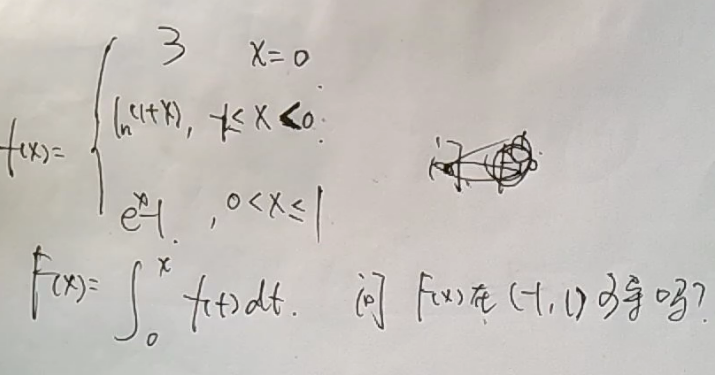 3 x=0
f(x)= ln(1+x), -1≤x<0.
e^x-1. , 0<x≤1
F(x)=∫_0^x f(t)dt. 问 F(x)在(-1,1)可导吗?